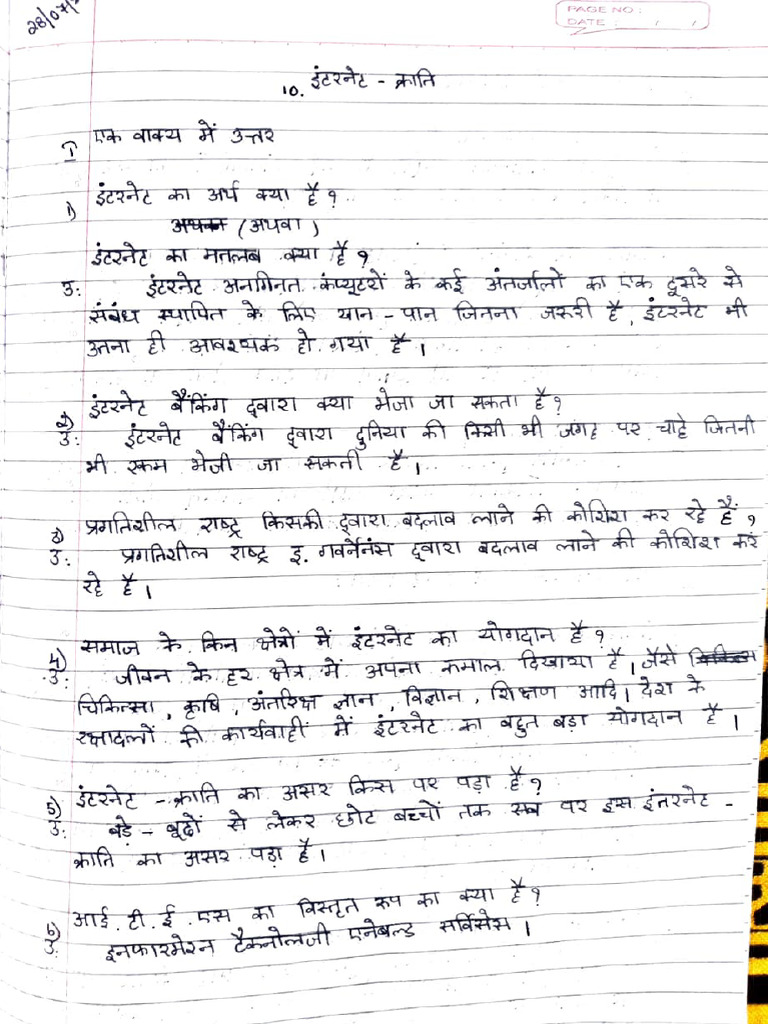 28/07/
PAGE NO :
DATE : / /
10. इंटरनेट - क्राति
I एक वाक्य में उत्तर
1) इंटरनेट का अर्थ क्या है?
(अथवा)
इंटरनेट का मतलब क्या है?
उ: इंटरनेट अनगिनत कंप्यूटरों के कई अंतर्जालों का एक दूसरे से
संबंध स्थापित के लिए खान - पान जितना जरुरी है, इंटरनेट भी
उतना ही आवश्यक हो गया है।
2) इंटरनेट बैंकिंग द्वारा क्या भेजा जा सकता है?
उ: इंटरनेट बैंकिंग द्वारा दुनिया की किसी भी जगह पर चाहे जितनी
भी रकम भेजी जा सकती है।
3) प्रगतिशील राष्ट्र किसकी द्वारा बदलाव लाने की कोशिश कर रहे हैं?
उ: प्रगतिशील राष्ट्र इ. गवर्नेनंस द्वारा बदलाव लाने की कोशिश कर
रहे है।
4) समाज के किन क्षेत्रों में इंटरनेट का योगदान है?
उ: जीवन के हर क्षेत्र में अपना कमाल दिखाया है। जैसे
चिकित्सा, कृषि, अंतरिक्ष ज्ञान, विज्ञान, शिक्षण आदि। देश के
रक्षादलों की कार्यवाही में इंटरनेट का बहुत बड़ा योगदान है।
5) इंटरनेट - क्राति का असर किस पर पड़ा है?
उ: बडे - बूढों से लेकर छोटे बच्चों तक सब पर इस इंतरनेट -
क्राति का असर पड़ा है।
6) आई. टी. ई. एस का विस्तृत रूप का क्या है?
उ: इनफारमेशन टैकनोलजी एनेबल्ड सर्विसेस।